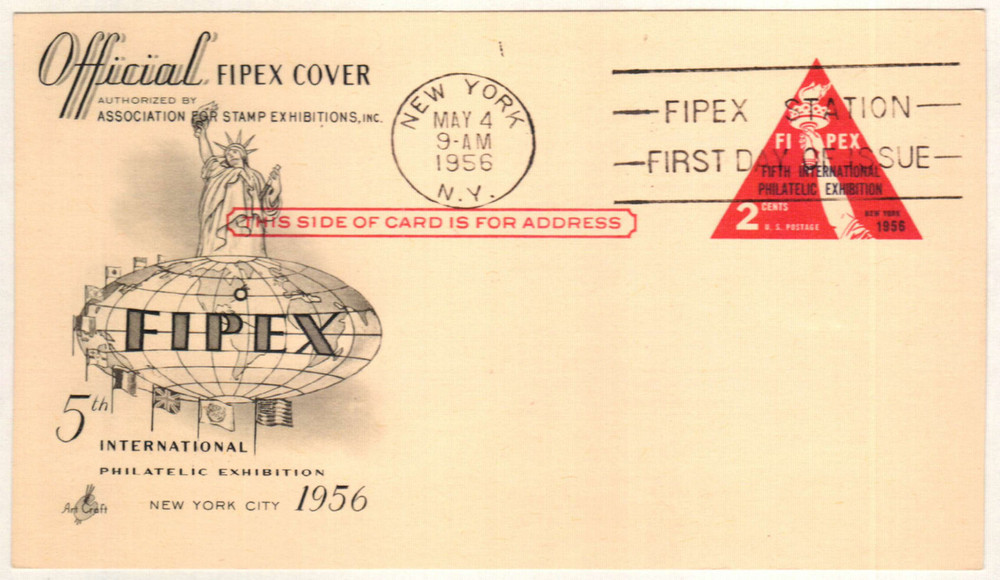 Official FIPEX COVER
AUTHORIZED BY
ASSOCIATION FOR STAMP EXHIBITIONS, INC.
NEW YORK
MAY 4
9-AM
1956
N.Y.
FIPEX STATION
FIRST DAY OF ISSUE
FIPEX
FIFTH INTERNATIONAL
PHILATELIC EXHIBITION
2 CENTS
U.S. POSTAGE
NEW YORK
1956
THIS SIDE OF CARD IS FOR ADDRESS
FIPEX
5th
INTERNATIONAL
PHILATELIC EXHIBITION
NEW YORK CITY 1956
Art Craft